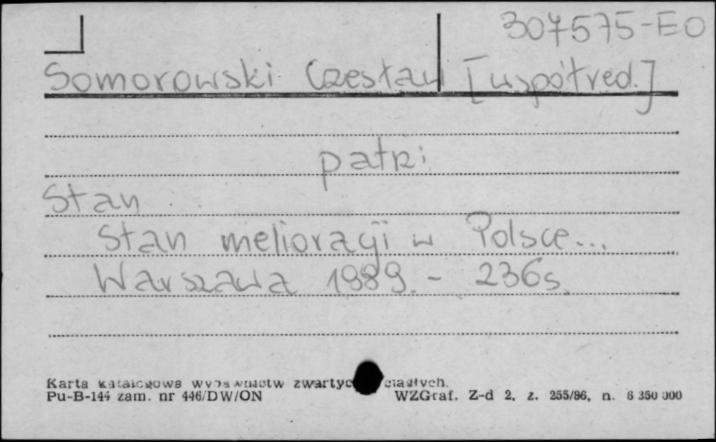 307575-EO
Somorowski Czesław [współred.]
patrz:
Stan
Stan melioracji w Polsce...
Warszawa 1989. - 236s.
Karta katalogowa wydawnictw zwartych ciągłych.
Pu-B-144 zam. nr 446/DW/ON WZGraf. Z-d 2, z. 255/86, n. 6 350 000